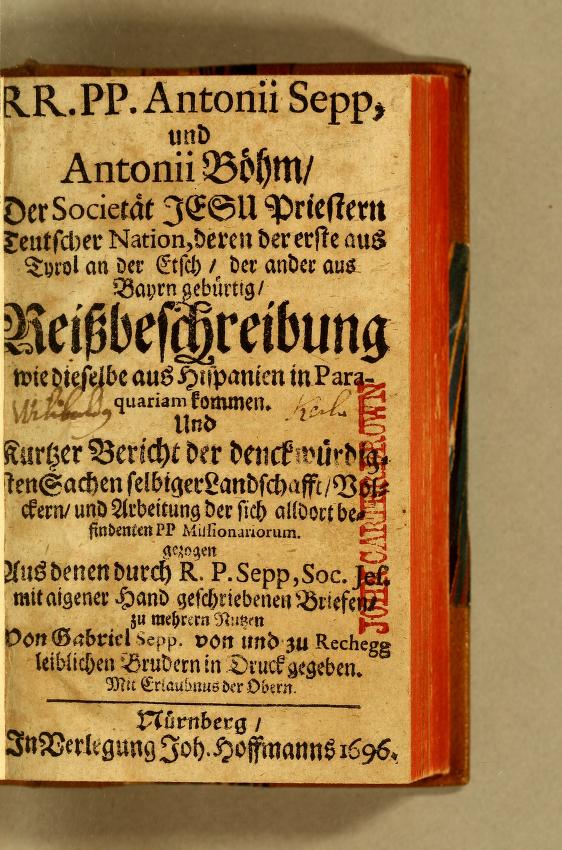 RR. PP. Antonii Sepp,
und
Antonii Böhm/
Der Societät JESU Priestern
Teutscher Nation, deren der erste aus
Tyrol an der Etsch / der ander aus
Bayrn gebürtig/
Reißbeschreibung
wie dieselbe aus Hispanien in Para-
quariam kommen.
Und
Kurtzer Bericht der denckwürdig-
sten Sachen selbiger Landschafft/ Völ-
ckern/ und Arbeitung der sich alldort be-
findenten PP Missionariorum.
gezogen
Aus denen durch R. P. Sepp, Soc. Jes.
mit aigener Hand geschriebenen Briefen/
zu mehrern Nutzen
Von Gabriel Sepp. von und zu Rechegg
leiblichen Brudern in Druck gegeben.
Mit Erlaubnus der Obern.
Nürnberg /
In Verlegung Joh. Hoffmanns 1696.
JOHN CARTER BROWN